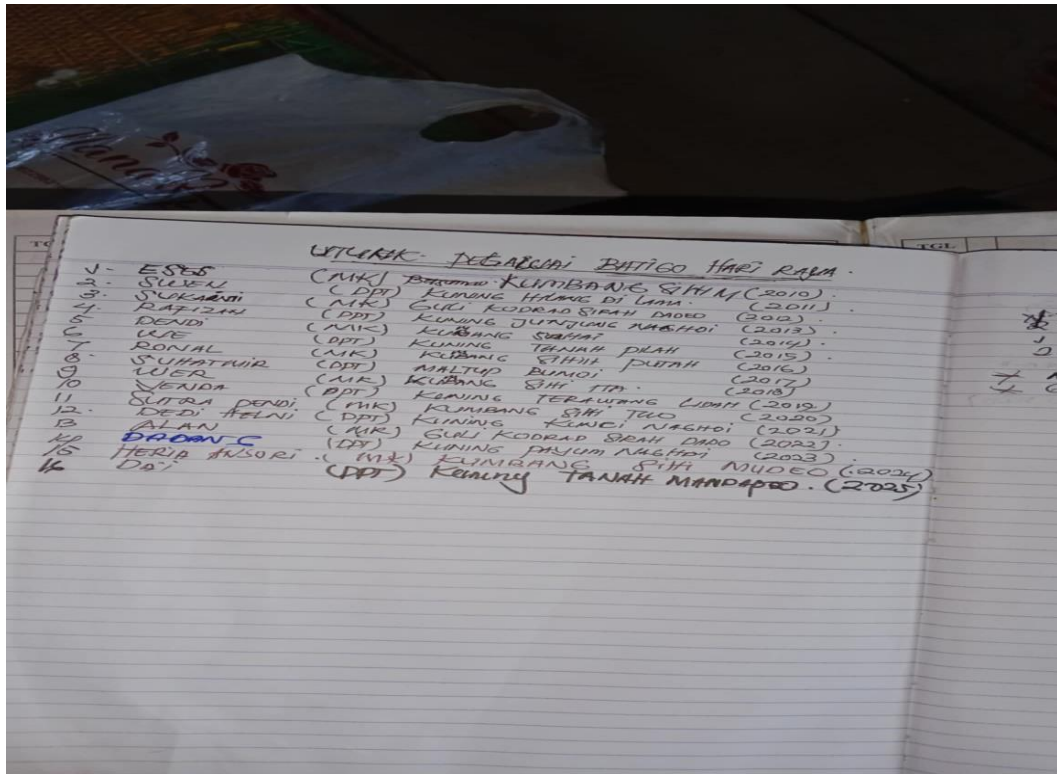 TGL
UNTUK PEGAWAI BATIGO HARI RAYA.
1. ESES (MK) KUMBANG SIHIN (2010).
2. SUWEN (DPT) KUNING HILANG DI LAMA. (2011)
3. SUKARNI (MK) GULI KODRAD SIRAH DADEO (2012).
4. RAFIZAN (DPT) KUNING JUNJUNG NAGHOI (2013).
5 DENDI (MK) KUBANG (2014).
6 (DPT) KUNING TANAH PILAH (2015)
7 RONAL (MK) KUBANG SIHIN PUTAH (2016)
8. SUHATMIR (DPT) MALTUP BUMOI (2017)
9 WER (MK) KUBANG SIHI TTA. (2018)
10 VENDA (DPT) KUNING TERAWANG LIDAH (2019)
11 SUTRA DENDI (MK) KUMBANG SIHI TUO (2020)
12. DEDI HELNI (DPT) KUNING KUNCI NAGHOI (2021)
13 ALAN (MK) GULI KODRAD SIRAH DADO (2022).
DADAN C (DPT) KUNING PAYUM NAGHOI (2023).
15 HERIA ANSORI. (MK) KUMBANG SIHI MUDEO (2024)
16 DAI (DPT) Kuning TANAH MANDAPEO. (2025)